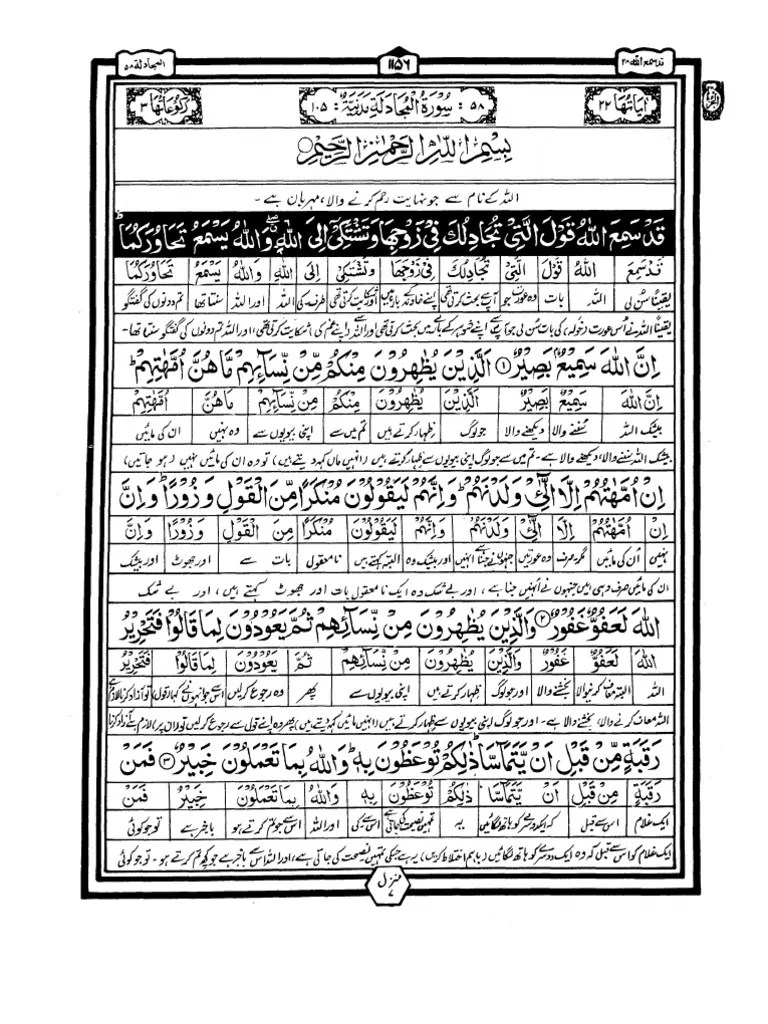 قد سمع الله ٢٨
١١٥٦
المجادلة ٥٨
اٰیَاتُهَا ٢٢
٥٨ : سُوْرَةُ الْمُجَادَلَةِ مَدَنِيَّةٌ : ١٠٥
رُكُوْعَاتُهَا ٣
بِسْمِ اللّٰهِ الرَّحْمٰنِ الرَّحِيْمِ
اللہ کے نام سے جو نہایت رحم کرنے والا، مہربان ہے -
قَدْ سَمِعَ اللّٰهُ قَوْلَ الَّتِيْ تُجَادِلُكَ فِيْ زَوْجِهَا وَتَشْتَكِيْٓ اِلَى اللّٰهِ ۖ وَاللّٰهُ يَسْمَعُ تَحَاوُرَكُمَا ؕ
قَدْ سَمِعَ اللّٰهُ قَوْلَ الَّتِيْ تُجَادِلُكَ فِيْ زَوْجِهَا وَتَشْتَكِيْ اِلَى اللّٰهِ وَاللّٰهُ يَسْمَعُ تَحَاوُرَكُمَا
یقیناً سن لی اللہ بات وہ عورت جو آپ سے بحث کرتی تھی اپنے خاوند کے بارہ میں اور شکایت کرتی تھی طرف۔کی اللہ اور اللہ سنتا تھا تم دونوں کی گفتگو
یقیناً اللہ نے اُس عورت (خولہ) کی بات سن لی جو آپ سے اپنے شوہر کے بارے میں بحث کرتی تھی اور اللہ سے اپنے غم کی شکایت کرتی تھی، اور اللہ تم دونوں کی گفتگو سنتا تھا -
اِنَّ اللّٰهَ سَمِيْعٌۢ بَصِيْرٌ ١ اَلَّذِيْنَ يُظٰهِرُوْنَ مِنْكُمْ مِّنْ نِّسَآئِهِمْ مَّا هُنَّ اُمَّهٰتِهِمْ ؕ
اِنَّ اللّٰهَ سَمِيْعٌ بَصِيْرٌ اَلَّذِيْنَ يُظٰهِرُوْنَ مِنْكُمْ مِنْ نِّسَآئِهِمْ مَا هُنَّ اُمَّهٰتِهِمْ
بیشک اللہ سننے والا دیکھنے والا جو لوگ ظہار کرتے ہیں تم میں سے اپنی بیویوں سے وہ نہیں ان کی مائیں
بیشک اللہ سننے والا، دیکھنے والا ہے - تم میں سے جو لوگ اپنی بیویوں سے ظہار کرتے ہیں (انہیں ماں کہہ دیتے ہیں) تو وہ ان کی مائیں نہیں (ہو جاتیں)
اِنْ اُمَّهٰتُهُمْ اِلَّا الّٰٓـِٔيْ وَلَدْنَهُمْ ؕ وَاِنَّهُمْ لَيَقُوْلُوْنَ مُنْكَرًا مِّنَ الْقَوْلِ وَزُوْرًا ؕ وَاِنَّ
اِنْ اُمَّهٰتُهُمْ اِلَّا الّٰٓـِٔيْ وَلَدْنَهُمْ وَاِنَّهُمْ لَيَقُوْلُوْنَ مُنْكَرًا مِنَ الْقَوْلِ وَزُوْرًا وَاِنَّ
نہیں اُن کی مائیں مگر صرف وہ عورتیں جنہوں نے جنا ہے انہیں اور بیشک وہ البتہ کہتے ہیں نامعقول سے بات اور جھوٹ اور بیشک
ان کی مائیں صرف وہی ہیں جنہوں نے اُنہیں جنا ہے، اور بے شک وہ ایک نامعقول بات اور جھوٹ کہتے ہیں، اور بے شک
اللّٰهَ لَعَفُوٌّ غَفُوْرٌ ٢ وَالَّذِيْنَ يُظٰهِرُوْنَ مِنْ نِّسَآئِهِمْ ثُمَّ يَعُوْدُوْنَ لِمَا قَالُوْا فَتَحْرِيْرُ
اللّٰهَ لَعَفُوٌّ غَفُوْرٌ وَالَّذِيْنَ يُظٰهِرُوْنَ مِنْ نِّسَآئِهِمْ ثُمَّ يَعُوْدُوْنَ لِمَا قَالُوْا فَتَحْرِيْرُ
اللہ البتہ معاف کرنیوالا بخشنے والا اور جو لوگ ظہار کرتے ہیں اپنی بیویوں سے پھر وہ رجوع کرلیں اس سے جو انہوں نے کہا (قول) تو آزاد کرنا لازم ہے
اللہ معاف کرنے والا، بخشنے والا ہے - اور جو لوگ اپنی بیویوں سے ظہار کرتے ہیں (انہیں مائیں کہہ دیتے ہیں) پھر وہ اپنے قول سے رجوع کرلیں تو ان پر لازم ہے آزاد کرنا
رَقَبَةٍ مِّنْ قَبْلِ اَنْ يَّتَمَآسَّا ؕ ذٰلِكُمْ تُوْعَظُوْنَ بِهٖ ؕ وَاللّٰهُ بِمَا تَعْمَلُوْنَ خَبِيْرٌ ٣ فَمَنْ
رَقَبَةٍ مِنْ قَبْلِ اَنْ يَّتَمَآسَّا ذٰلِكُمْ تُوْعَظُوْنَ بِهٖ وَاللّٰهُ بِمَا تَعْمَلُوْنَ خَبِيْرٌ فَمَنْ
ایک غلام اس سے قبل کہ ایک دوسرے کو ہاتھ لگائیں یہ تمہیں نصیحت کی جاتی ہے اس سے۔کی اور اللہ اس سے جو تم کرتے ہو باخبر ہے تو جو کوئی
ایک غلام کو اس سے قبل کہ وہ ایک دوسرے کو ہاتھ لگائیں (باہم اختلاط کریں) یہ ہے جس کی تمہیں نصیحت کی جاتی ہے، اور اللہ اس سے باخبر ہے جو کچھ تم کرتے ہو - تو جو کوئی
منزل ٧